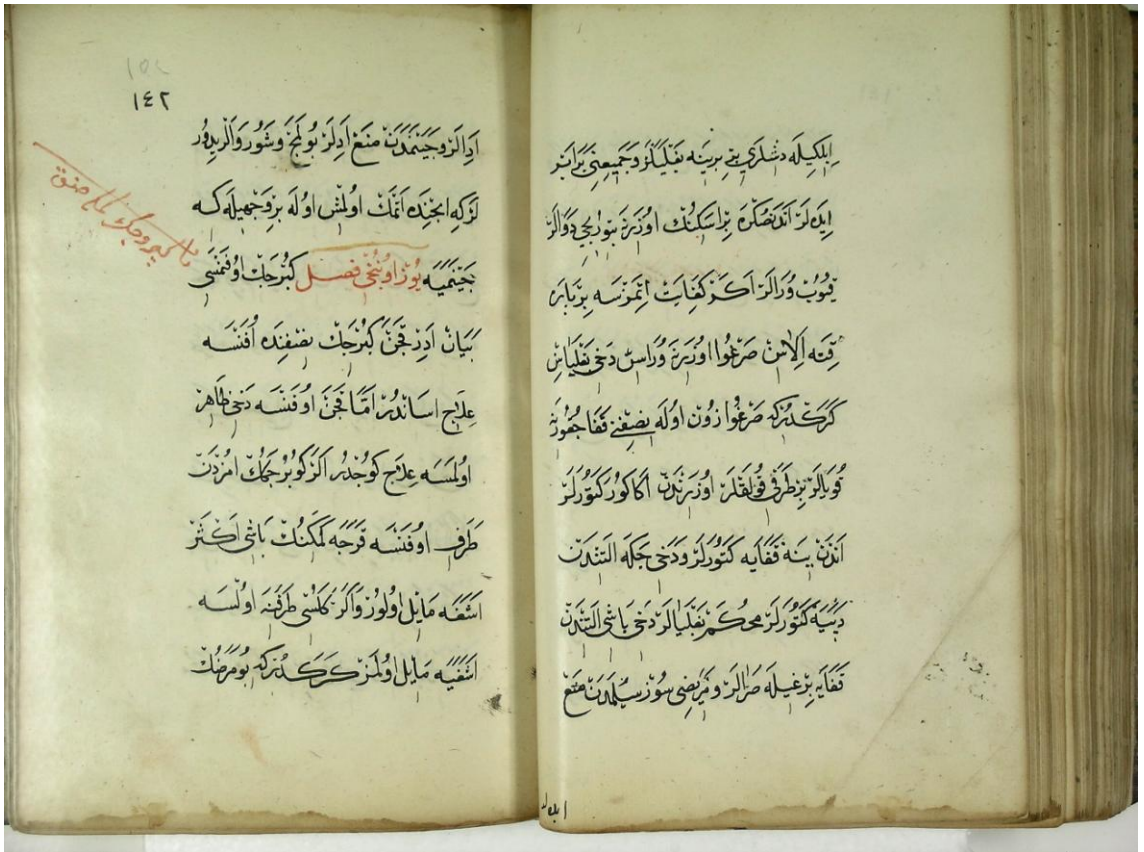 ابلكيله دشلري بربرينه بغليالر وجميعني برابر
ايده لر اندنصكره براسكنك اوزرينه يتوريجي دوالر
قيوب ورالر اكر كفايت اتمزسه برباره
رقته الاسن صرغوا اوزرينه وراسن دخي بغلياسن
كركدركه صرغوا زون اوله نصفني قفا جقورينه
قويالر برطرفي قولقلر اوزرندن اكاكور كتورلر
اندن ينه قفايه كتورلر ودخي جكه التندن
دپيه كتورلر محكم بغليالر دخي باشي التندن
قفايه برغيله صرالر ومريضي سوز سيلمدن منع
ادالر وجينمدن منع ادلر بولمج وشوروالر يدور
لر كه ايجنده اتمك اولمش اوله بروجهيله كه
جينميه يوز اوننجي فصل كپرجك اوفنمسني
بيان ادر قچن كپرجك نصفنده اوفنسه
علاج اساندر اما قچن اوفنسه دخي ظاهر
اولمسه علاج كوجدر اكر كوبرجكك امزدن
طرف اوفنسه قرجه كمكنك باشي اكثر
اشغه مايل اولور واكر كلسي طرفنه اولسه
اشغيه مايل اولمز كركدركه بومرضك
١٤٢